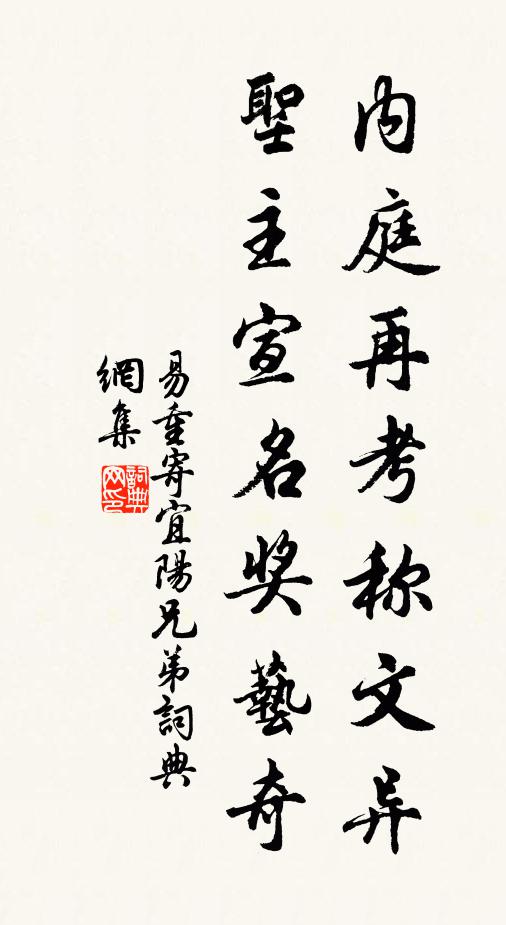 内庭再考称文异
聖主宣名奖藝奇
易重寄宜陽兄弟詞典
網集
詞典
网印